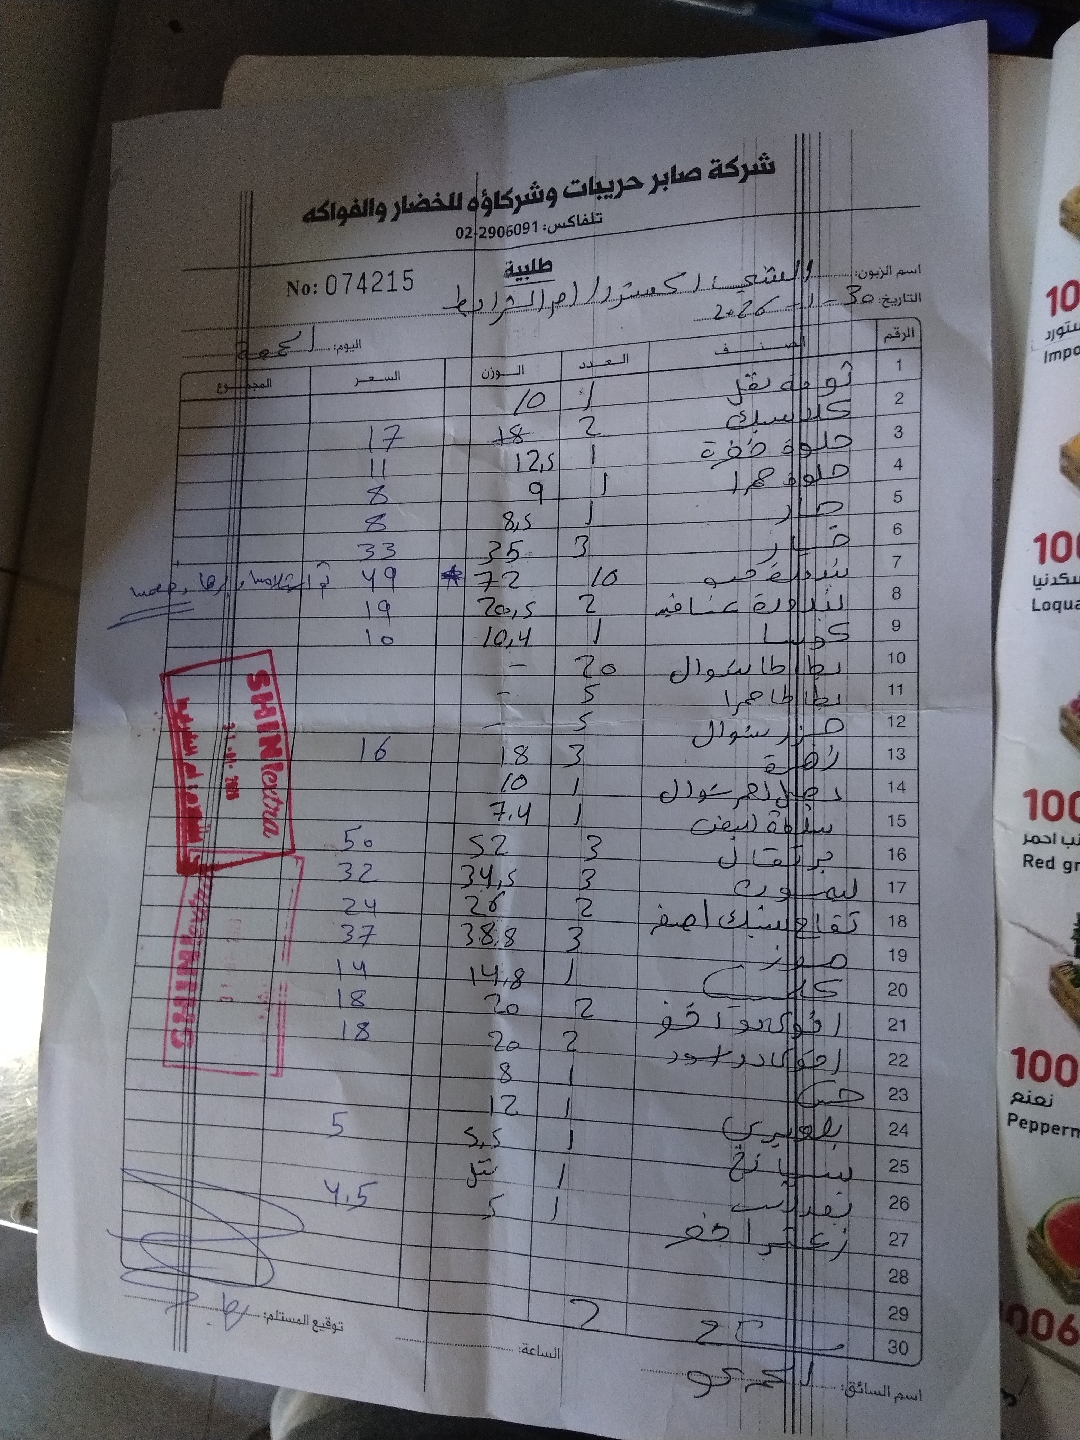 شركة صابر حريبات وشركاؤه للخضار والفواكه
تلفاكس: 02-2906091
طلبية
No: 074215
اسم الزبون: الشني اكسترا / ام الشرايط
التاريخ: 30-1-2026
اليوم: الجمعة
الرقم الصنف العدد الوزن السعر المجموع
1 ثومة نقل 1 10
2 كلاسيك 2 18 17
3 حلوة خضرة 1 12,5 11
4 حلوة حمرا 1 9 8
5 حار 1 8,5 8
6 خيار 3 35 33
7 بندورة 10 72 49
8 بندورة عناقيد 2 20,5 19
9 كوسا 1 10,4 10
10 بطاطا شوال 20 -
11 بطاطا حمرا 5 -
12 جزر شوال 5 -
13 زهرة 3 18 16
14 بصل احمر شوال 1 10
15 1 7,4
16 برتقال 3 52 50
17 ليمون 3 34,5 32
18 تفاح اصفر 2 26 24
19 موز 3 38,8 37
20 1 14,8 14
21 افوكادو اخضر 2 20 18
22 افوكادو اسود 2 20 18
23 خس 1 8
24 1 12
25 سبانخ 1 5,5 5
26 1
27 زعتر اخضر 1 5 4,5
28
29
30
SHINI extra
SHINI
اسم السائق:
الساعة:
توقيع المستلم:
100
Impo
100
اسكدنيا
Loqua
100
نب احمر
Red gr
100
نعنع
Pepperm
1006